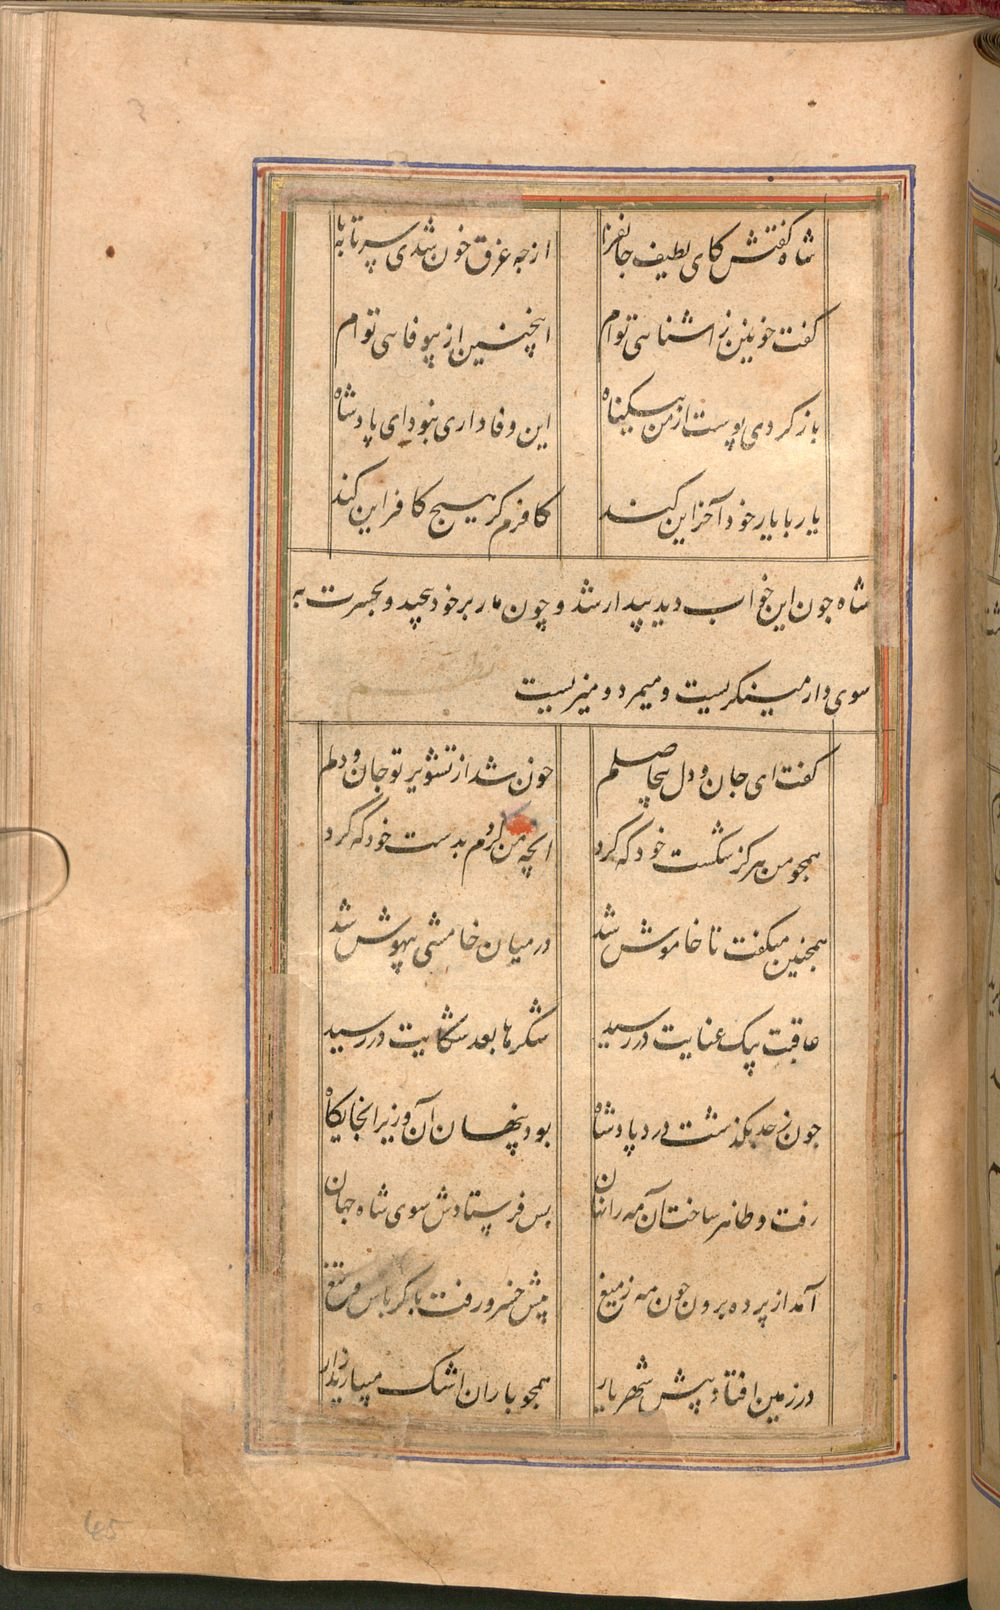 شاه گفتش کای لطیف جانفزا از چه غرق خون شدی سر تا بپا
گفت خونین ز اشنایی توام اینچنین از بیوفایی توام
باز کردی پوست از من بیگناه این وفاداری نبود ای پادشاه
یار با یار خود آخر این کند کافرم گر هیچ کافر این کند
شاه جون این خواب دید بیدار شد و چون مار بر خود بپیچید و بحسرت به
سوی دار مینگریست و میمرد و میزیست
گفت ای جان و دل بیحاصلم خون شد از تشویر تو جان و دلم
همجو من هرکز شکست خود که کرد انچه من کردم بدست خود که کرد
همجنین میکفت تا خاموش شد در میان خامشی بیهوش شد
عاقبت پیک عنایت در رسید شکرها بعد شکایت در رسید
جون ز حد بکذشت درد پادشاه بود پنهان آن وزیر انجایکاه
رفت و ظاهر ساخت آن مه را نهان بس فرستادش سوی شاه جهان
آمد از پرده برون جون مه ز میغ پیش خسرو رفت با کرباس و تیغ
در زمین افتاد پیش شهریار همجو باران اشک میبارید زار
45